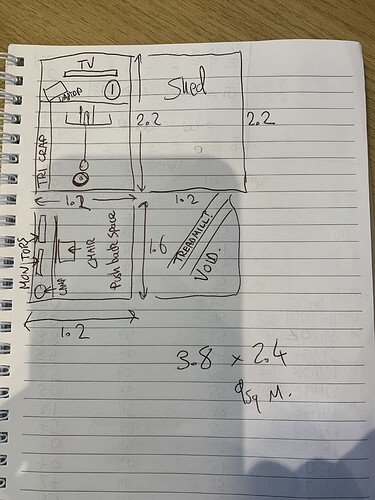 TV
LAPTOP
1
Shed
2.2
2.2
TRI CRAP
1.2
1.2
MONITORS
LAMP
CHAIR
Push back space
1.6
TREADMILL?
VOID.
1.2
3.8 x 2.4
9 Sq M.